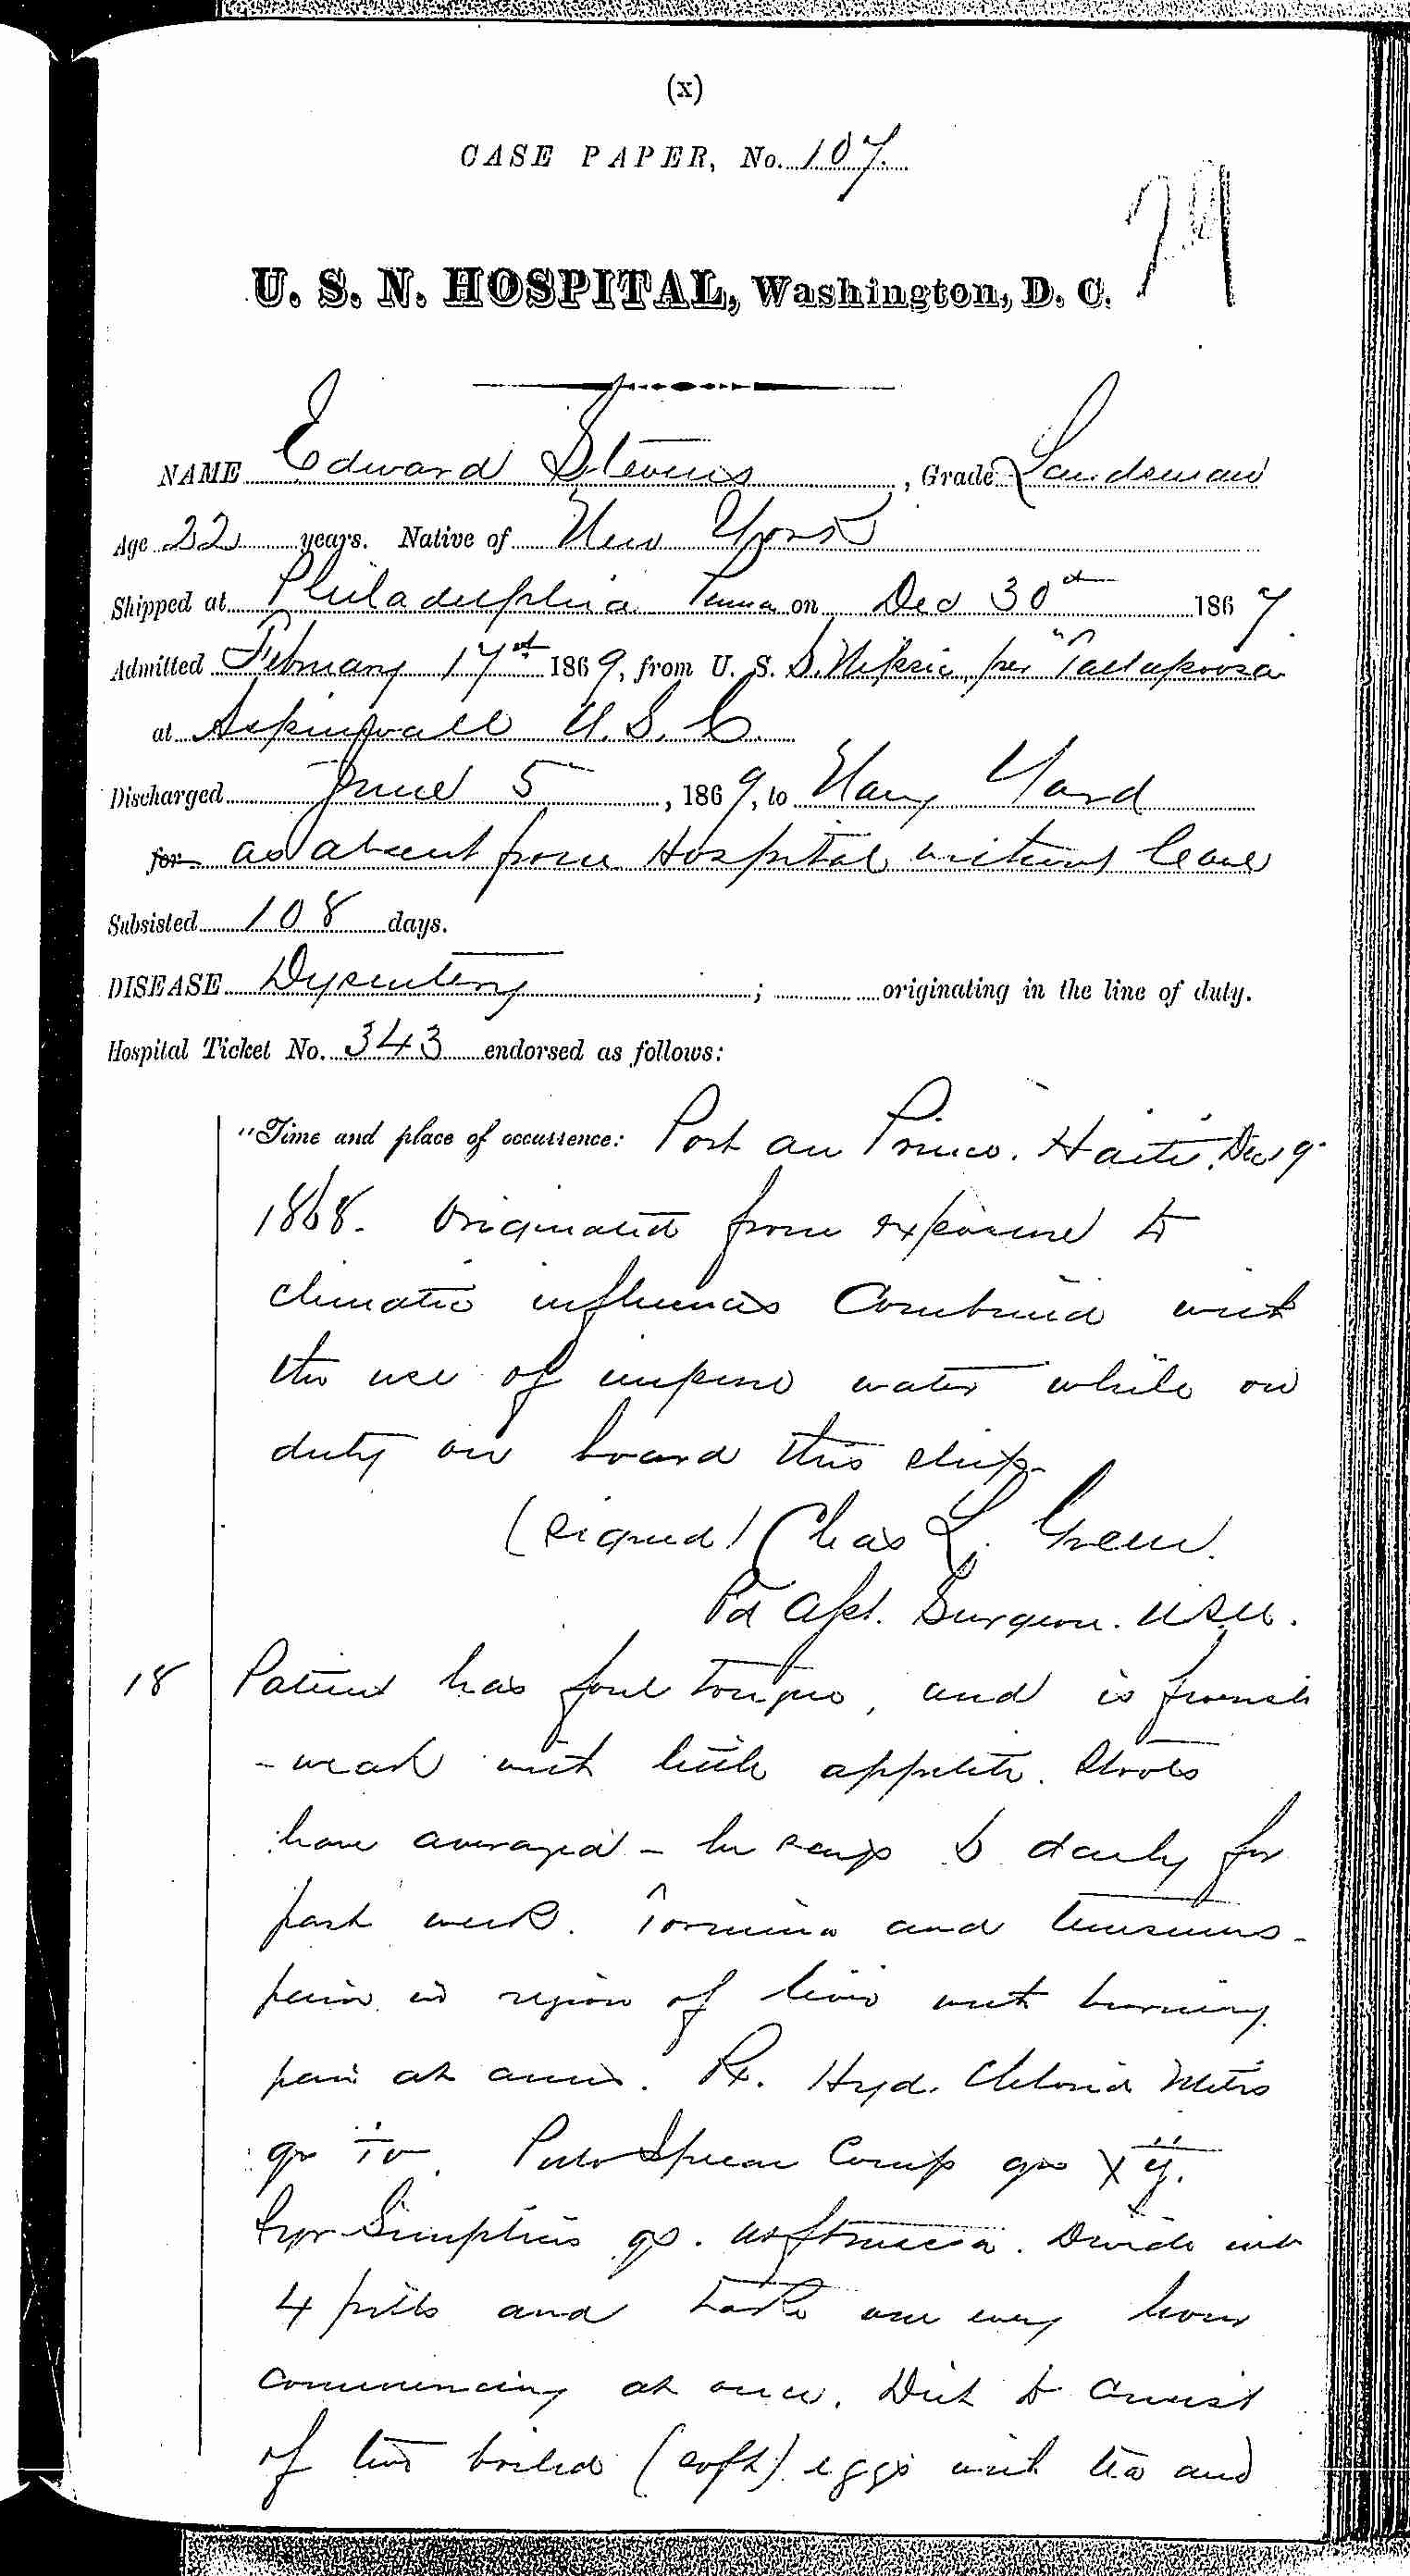 (x)
CASE PAPER, No. 107.
29
U. S. N. HOSPITAL, Washington, D. C.
NAME Edward Stevens, Grade Landsman
Age 22 years. Native of New York
Shipped at Philadelphia Penna on Dec 30th 1867.
Admitted February 17th 1869, from U. S. S. Nipsic, per "Tallapoosa
at Aspinwall U.S.C.
Discharged June 5, 1869, to Navy Yard
for as absent from Hospital without leave
Subsisted 108 days.
DISEASE Dysentery; originating in the line of duty.
Hospital Ticket No. 343 endorsed as follows:
"Time and place of occurrence: Port au Prince. Haiti. Dec 9
1868. Originated from exposure to
climatic influences combined with
the use of impure water while on
duty on board this ship.
(signed) Chas L. Green.
Pd Asst. Surgeon. USN.
18 Patient has foul tongue, and is
- weak with little appetite. Stools
have averaged - he says daily for
past week. Tormina and tenesmus -
pain in region of liver with burning
pain at anus. Rx. Hyd. Chlorid Mitis
gr iv. Pulv Ipecac Comp grs xij.
Syr Simplicis qs. ut ft massa. Divide into
4 pills and take one every hour
commencing at once. Diet to consist
of two boiled (soft) eggs with tea and